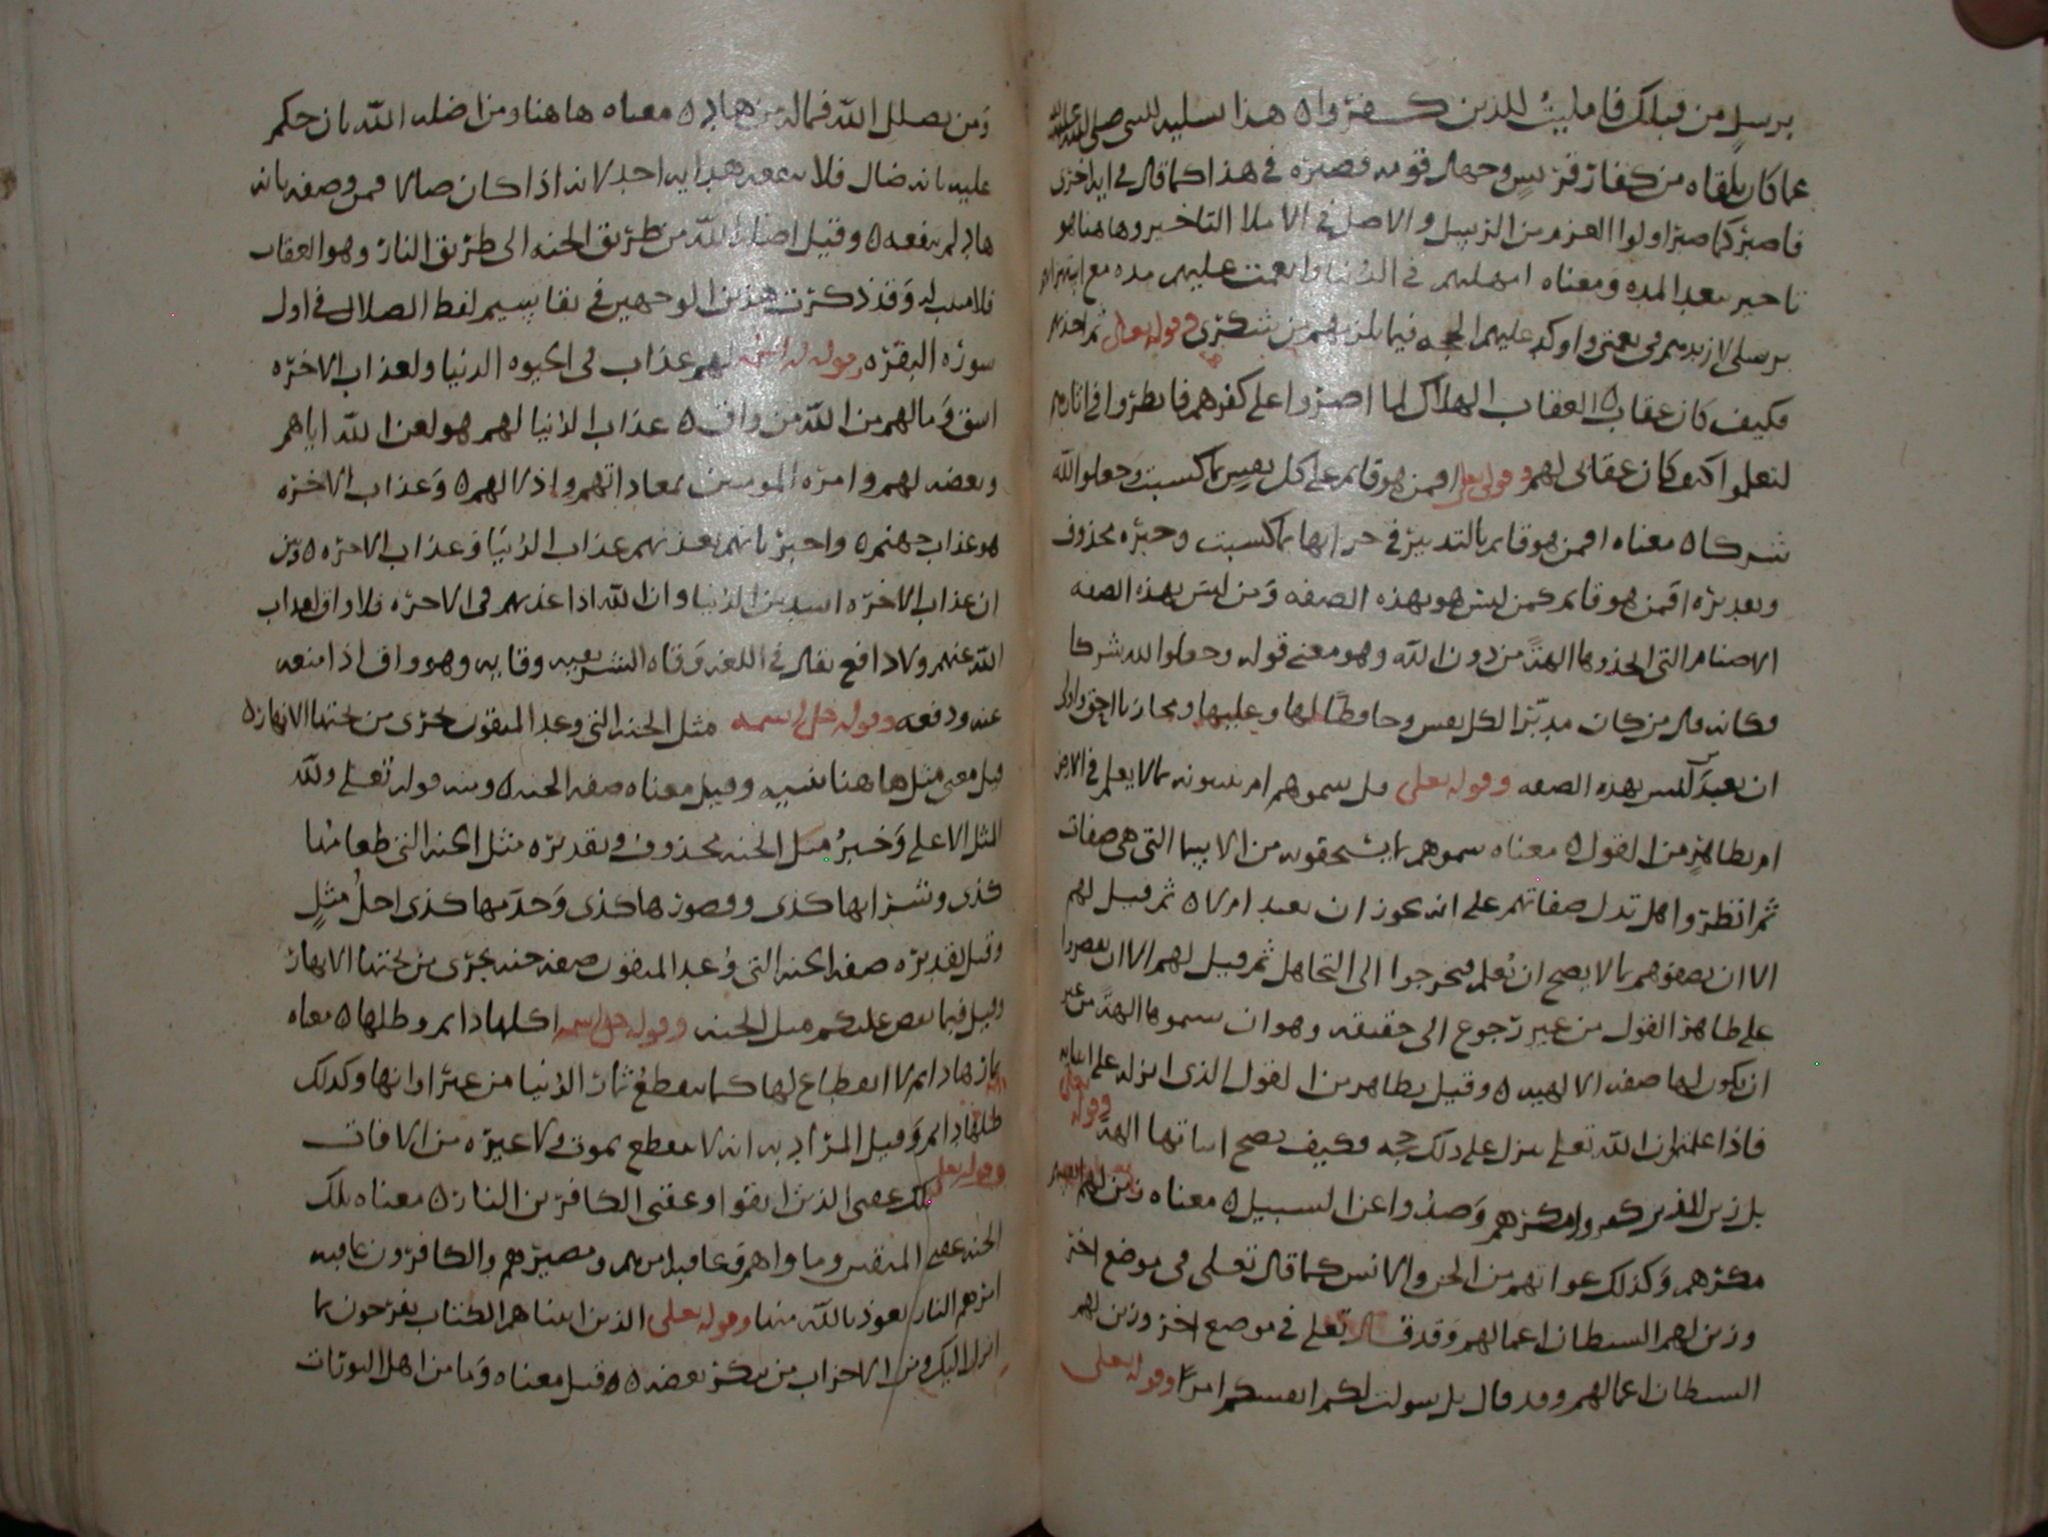 برسل من قبلك فامليت للذين كفروا ه هذا تسليه للنبي صلى الله عليه
عما كان يلقاه من كفار قريش وجهال قومه فصبره في هذا كما قال في ايه اخرى
فاصبر كما صبر اولوا العزم من الرسل والاصل في الاملا التاخير وهاهنا هو
تاخير بعد المده ومعناه امهلتهم في الدنيا وانعمت عليهم مده مع استهزائهم
برسلى لازيدهم في نعمتى واوكد عليهم الحجه فيما يلزمهم من شكرى وقوله تعالى ثم اخذتهم
فكيف كان عقاب ه العقاب الهلاك لما اصروا على كفرهم فانظروا في اثارهم
لتعلموا كيف كان عقابى لهم وقوله تعلى افمن هو قايم على كل نفس بما كسبت وجعلوا لله
شركا ه معناه افمن هو قايم بالتدبير في جزايها بما كسبت وخبره محذوف
وتقديره افمن هو قايم كمن ليس هو بهذه الصفه ومن ليس بهذه الصفه
الاصنام التى اتخذوها الهة من دون الله وهو معنى قوله وجعلوا لله شركا
فكانه قال من كان مدبرا لكل نفس وحافظا لها وعليها ومجازيا احق واولى
ان يعبد ام من ليس بهذه الصفه وقوله تعلى قل سموهم ام تنبونه بما لا يعلم في الارض
ام بظاهر من القول ه معناه سموهم بما يستحقونه من الاسما التى هى صفات
ثم انظروا هل تدل صفاتهم على انه يجوز ان تعبد ام لا ه ثم قيل لهم
الا ان يصفوهم بما لا يصح ان يُعلم فيخرجوا الى التجاهل ثم قيل لهم الا ان يقصروا
على ظاهر القول من غير رجوع الى حقيقه وهو ان يسموها الهة من غير
ان يكون لها صفه الالهيه ه وقيل بظاهر من القول الذى انزله على انبيايه
فاذا علمتم ان الله تعلى لم ينزل على ذلك حجه فكيف يصح اثباتها الهة وقوله تعلى
بل زين للذين كفروا مكرهم وصدوا عن السبيل ه معناه زين لهم انفسهم
مكرهم وكذلك غواتهم من الجن والانس كما قال تعلى في موضع اخر
وزين لهم الشيطان اعمالهم وقد قال تعلى في موضع اخر وزين لهم
الشيطان اعمالهم وقد قال بل سولت لكم انفسكم امرا وقوله تعلى
ومن يضلل الله فماله من هاد ه معناه هاهنا ومن اضله الله بان حكم
عليه بانه ضال فلا ينفعه هدايه احد لانه اذا كان ضالا فمن وصفه بانه
هاد لم ينفعه ه وقيل اضلال الله من طريق الجنه الى طريق النار وهو العقاب
وقد ذكرت هذين الوجهين في تقاسيم لفظ الضلال في اول
سوره البقره لهم عذاب في الحيوه الدنيا ولعذاب الاخره
اشق وما لهم من الله من واق ه عذاب الدنيا لهم هو لعن الله اياهم
وبغضه لهم وامره المومنين بمعاداتهم واذلالهم ه وعذاب الاخره
هو عذاب جهنم ه واخبر بانهم يعذبهم عذاب الدنيا وعذاب الاخره ه وبين
ان عذاب الاخره اشد من الدنيا وان الله اذا عذبهم في الاخره فلا واق لعذاب
الله عنهم ولا دافع يقال في اللغه وقاه الشر يقيه وقايه وهو واق اذا منعه
عنه ودفعه وقوله جل اسمه مثل الجنه التى وعد المتقون تجرى من تحتها الانهار ه
قيل معنى مثل هاهنا شبيه وقيل معناه صفه الجنه ه ومنه قوله تعلى ولله
المثل الاعلى وخبرُ مثل الجنه محذوف وتقديره مثل الجنه التى طعامها
كذى وشرابها كذى وقصورها كذى وخدمها كذى اجلُ مثلٍ
وقيل تقديره صفه الجنه التى وُعد المتقون صفه جنه تجرى من تحتها الانهار
وقيل فيما نقص عليكم مثل الجنه وقوله جل اسمه اكلها دايم وظلها ه معناه
ثمارها دايم لا انقطاع لها كما تنقطعُ ثمار الدنيا من غير اوانها وكذلك
ظلها دايم وقيل المراد به انه لا ينقطع بموت ولا غيره من الافات
وقوله تعلى تلك عقبى الذين اتقوا وعقبى الكافرين النار ه معناه تلك
الجنه عقبى المتقين وماواهم وعاقبه امرهم ومصيرهم والكافرون عاقبه
امرهم النار نعوذ بالله منها وقوله تعلى الذين اتيناهم الكتاب يفرحون بما
انزل اليك ومن الاحزاب من ينكر بعضه ه ه قيل معناه وما من اهل